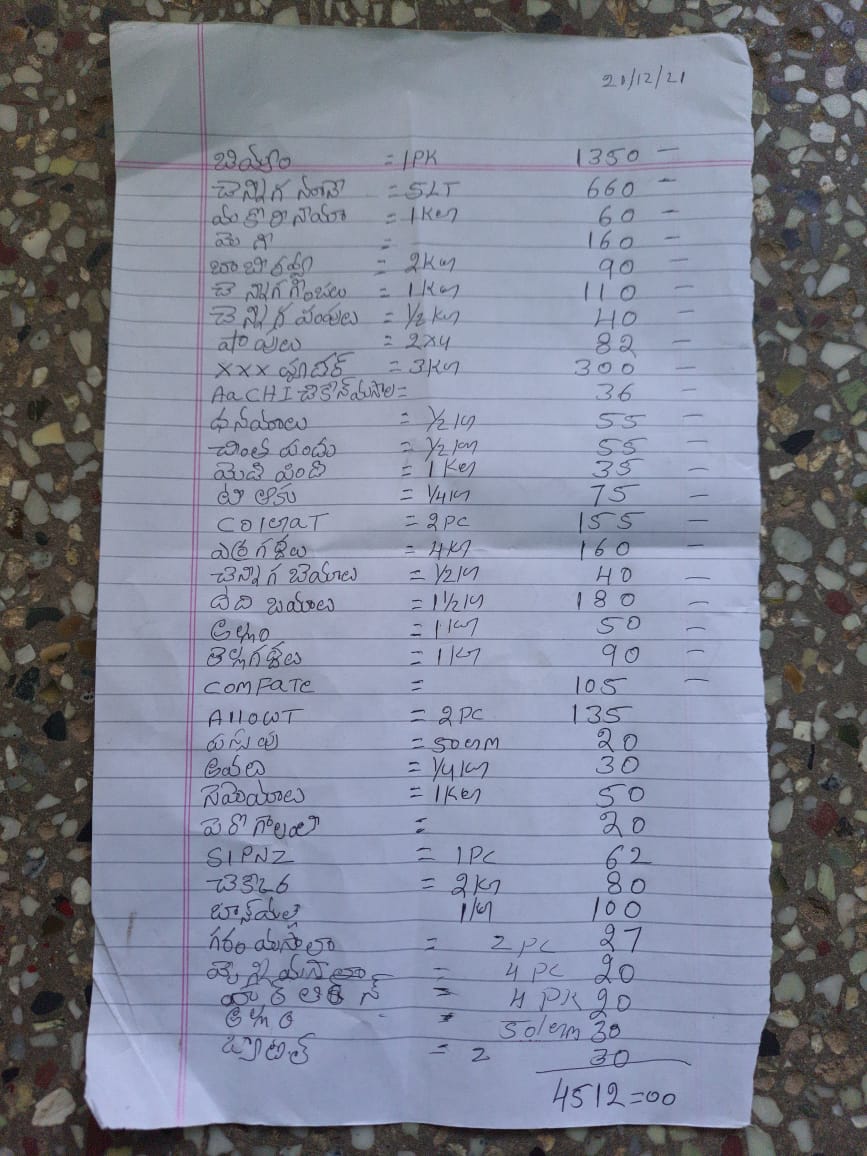 21/12/21
బియ్యం = 1PK 1350 —
చెన్నిగ నూనె = 5LT 660 —
= 1Kg 60 —
= 160 —
బొంబాయి రవ్వ = 2Kg 90 —
చెన్నిగ గింజలు = 1Kg 110 —
చెన్నిగ పంపులు = 1/2 Kg 40 —
= 2X4 82 —
XXX పౌడర్ = 3Kg 300 —
AaCHI చికెన్ మసాల = 36 —
ధనియాలు = 1/2 Kg 55 —
చింత పండు = 1/2 Kg 55 —
మైదా పిండి = 1Kg 35 —
టీ ఆకు = 1/4 Kg 75 —
ColgaT = 2PC 155 —
ఎర్రగడ్డలు = 4Kg 160 —
చెన్నిగ = 1/2 Kg 40 —
= 1 1/2 Kg 180 —
అల్లం = 1Kg 50 —
తెల్లగడ్డలు = 1Kg 90 —
ComFaTe = 105 —
AllowT = 2PC 135
పసుపు = 50gm 20
= 1/4 Kg 30
సేమియాలు = 1Kg 50
= 20
SIPNZ = 1PC 62
చెక్కెర = 2Kg 80
1Kg 100
గరం మసాలా = 2PC 27
= 4PC 20
= 4PK 20
అల్లం = 50gm 30
= 2 30
4512=00